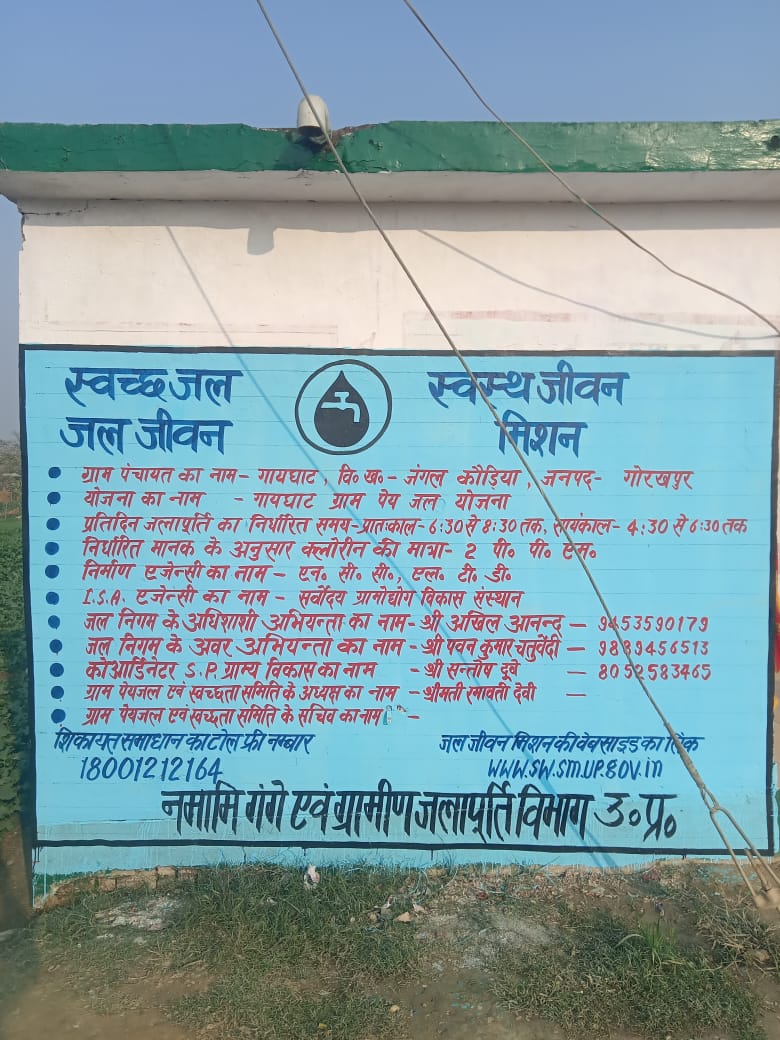 स्वच्छ जल स्वस्थ जीवन
जल जीवन मिशन
ग्राम पंचायत का नाम- गायघाट, वि० ख०- जंगल कौड़िया, जनपद- गोरखपुर
योजना का नाम - गायघाट ग्राम पेय जल योजना
प्रतिदिन जलापूर्ति का निर्धारित समय-प्रातःकाल-6:30 से 8:30 तक, सायंकाल- 4:30 से 6:30 तक
निर्धारित मानक के अनुसार क्लोरीन की मात्रा- 2 पी० पी० एम०
निर्माण एजेन्सी का नाम - एन० सी० सी०, एल० टी० डी०
I.S.A. एजेन्सी का नाम - सर्वोदय ग्रामोद्योग विकास संस्थान
जल निगम के अधिशाशी अभियन्ता का नाम-श्री अखिल आनन्द - 9453590179
जल निगम के अवर अभियन्ता का नाम-श्री पवन कुमार चतुर्वेदी - 9889456513
कोआर्डिनेटर S.P. ग्राम्य विकास का नाम -श्री सन्तोष दूबे - 8052583465
ग्राम पेयजल एवं स्वच्छता समिति के अध्यक्ष का नाम -श्रीमती रमावती देवी -
ग्राम पेयजल एवं स्वच्छता समिति के सचिव का नाम -
शिकायत समाधान का टोल फ्री नम्बार जल जीवन मिशन की वेबसाइड का लिंक
18001212164 WWW.SW.SM.UP.GOV.in
नमामि गंगे एवं ग्रामीण जलापूर्ति विभाग उ० प्र०